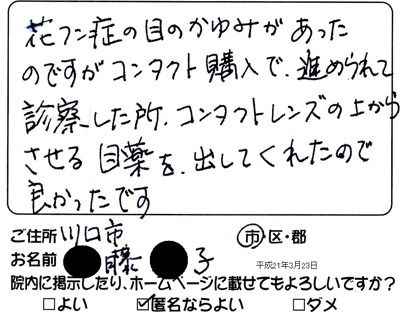 花フン症の目のかゆみがあった
のですがコンタクト購入で、進められて
診察した所、コンタクトレンズの上から
させる目薬を、出してくれたので
良かったです
ご住所 川口市 市・区・郡
お名前 藤 子 平成21年3月23日
院内に掲示したり、ホームページに載せてもよろしいですか?
□よい ☑匿名ならよい □ダメ